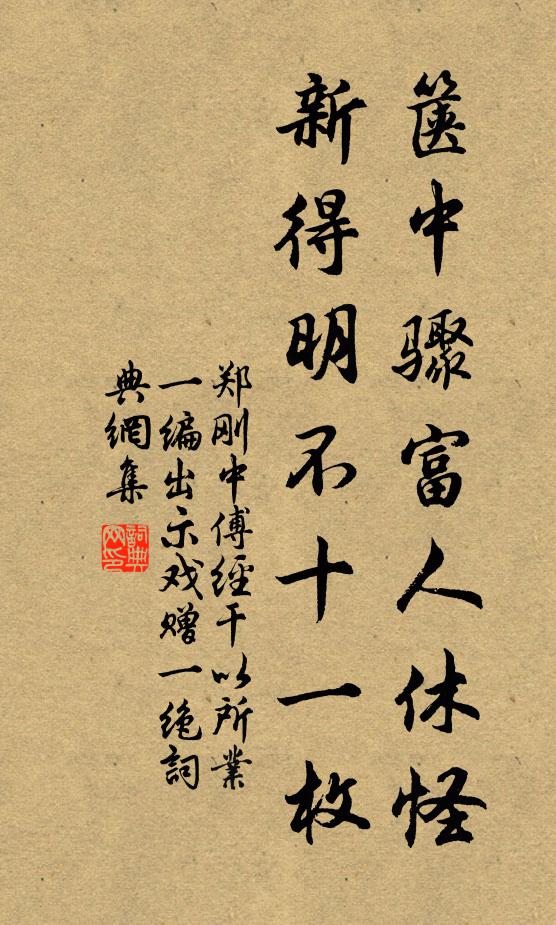 篋中骤富人休怪
新得明不十一枚
郑刚中傅經干以所業
一编出示戏赠一绝詞
典網集
詞典网印